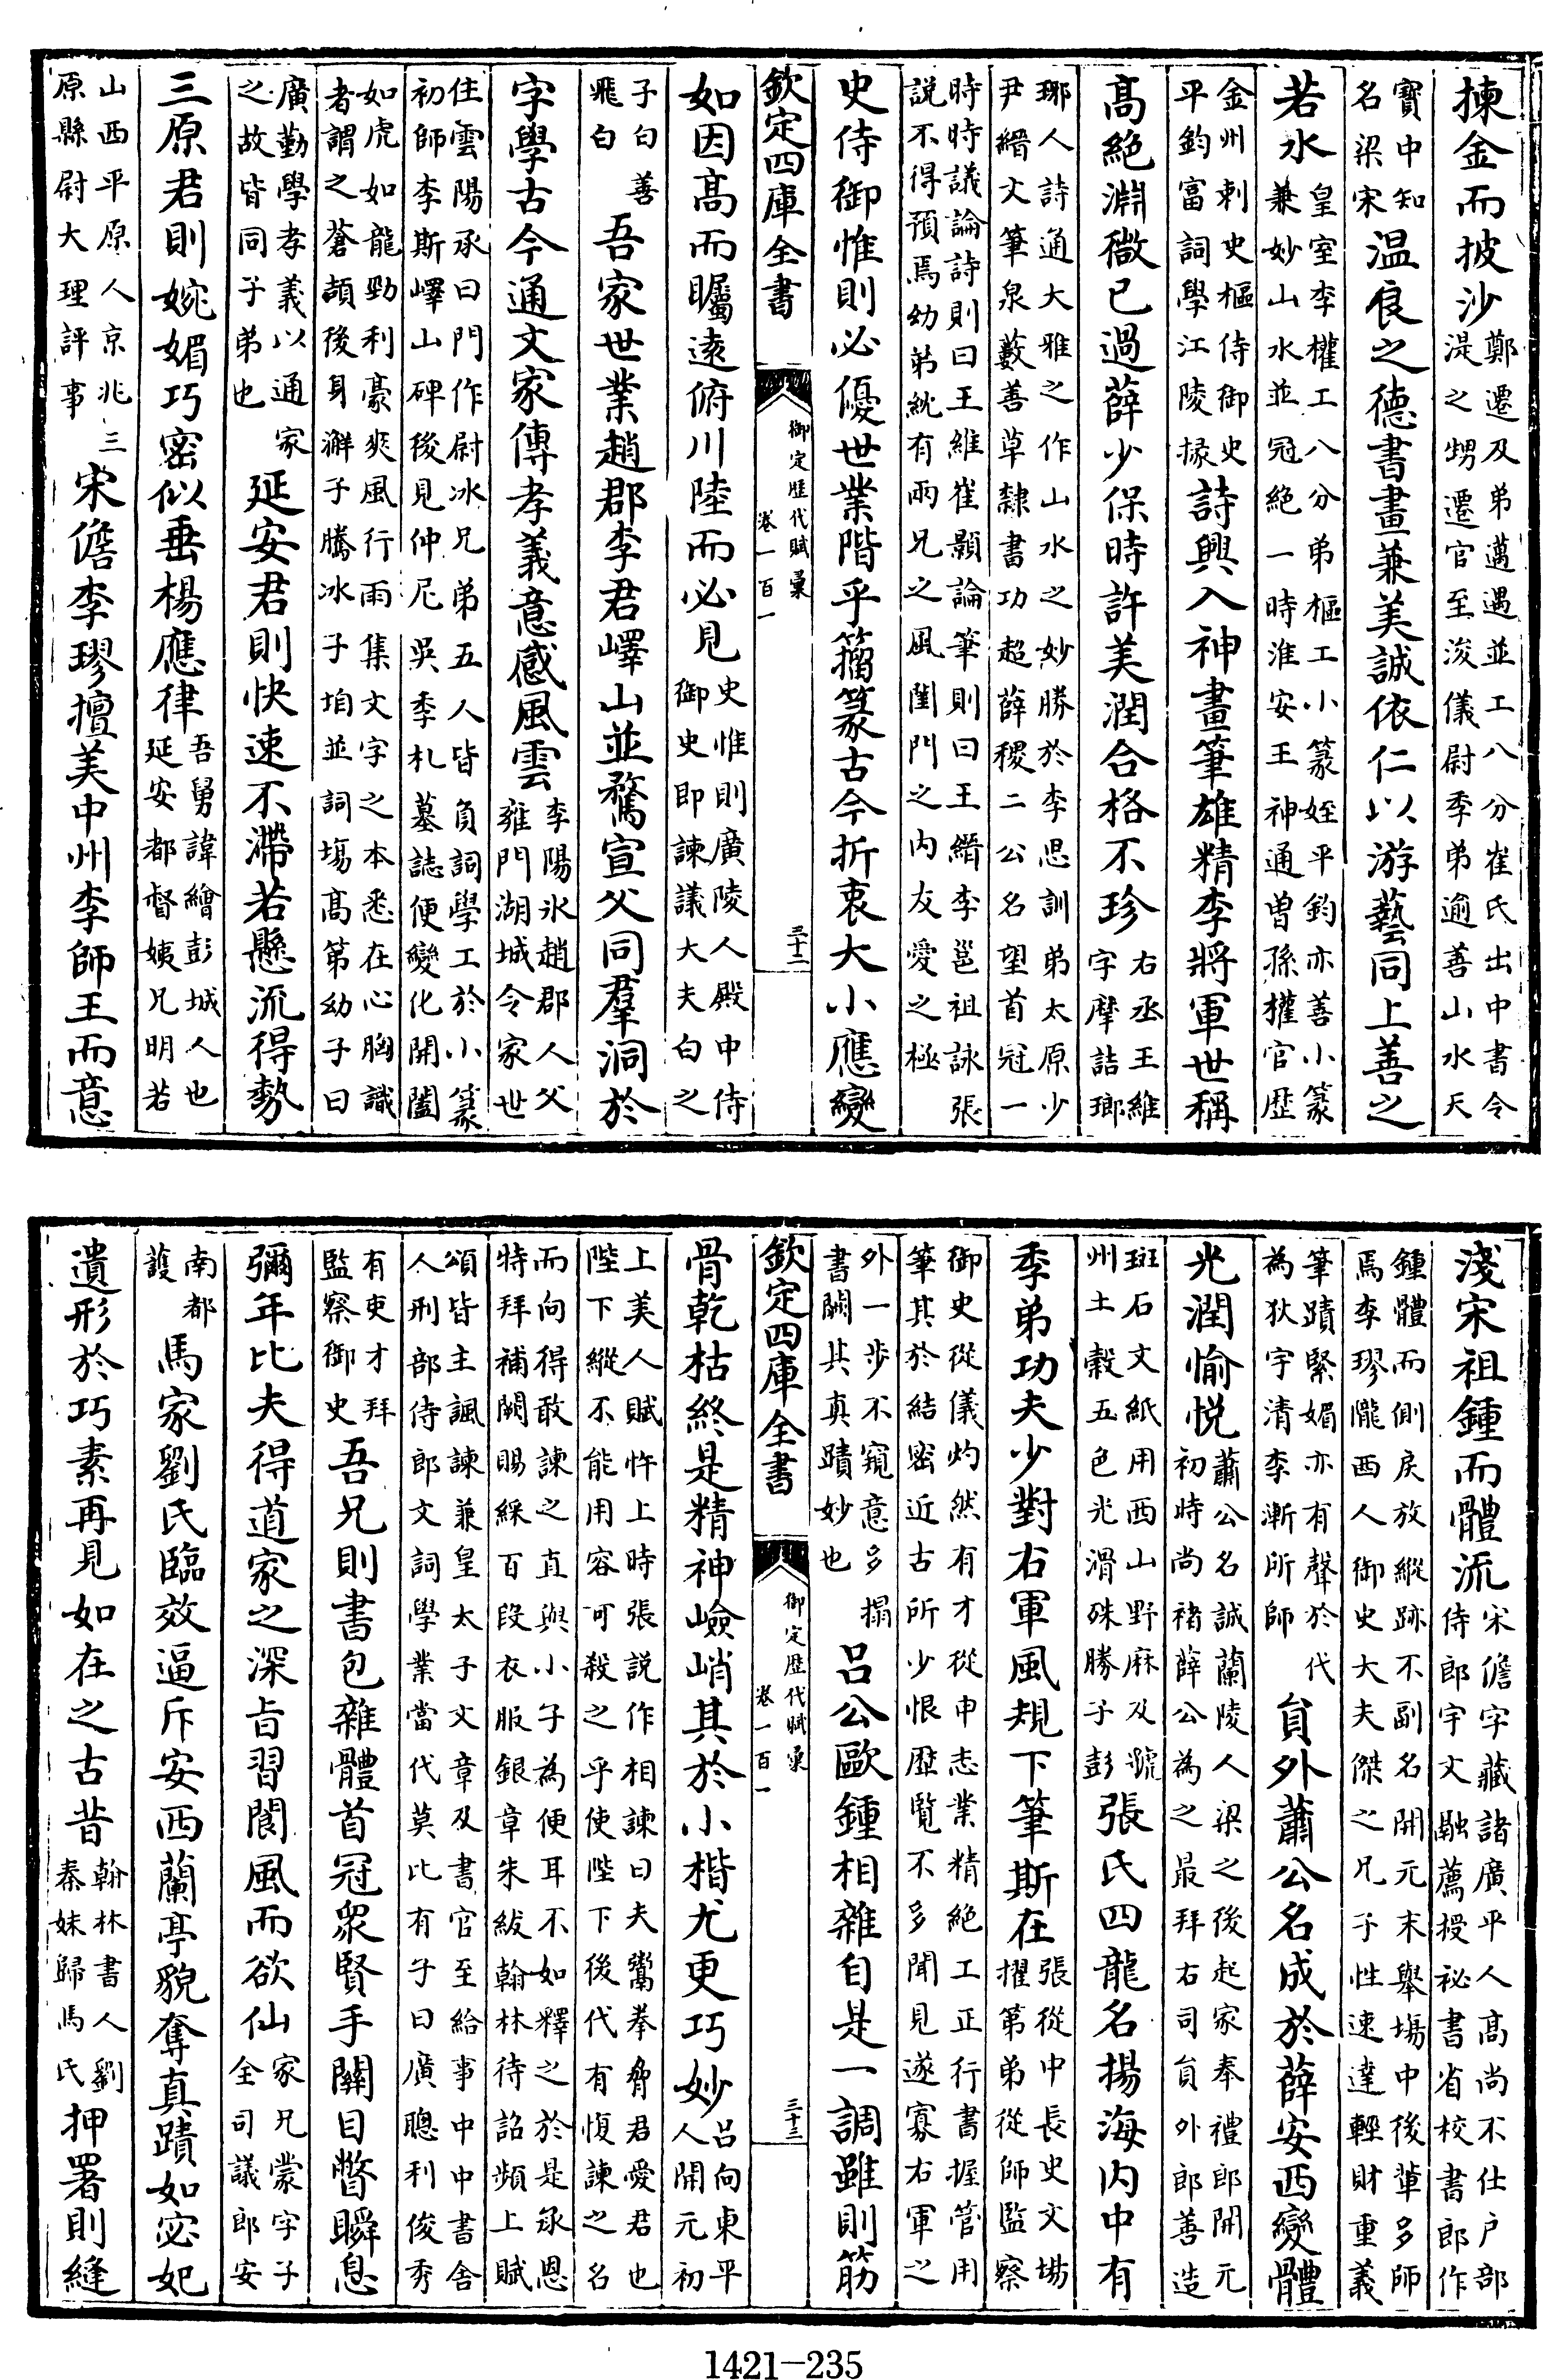 揀金而披沙鄭遷及弟邁遇並工八分崔氏出中書令湜之甥遷官至浚儀尉季弟逾善山水天
寳中知名梁宋温良之德書畫兼美誠依仁以游藝同上善之
若水皇室李權工八分弟樞工小篆姪平鈞亦善小篆兼妙山水並冠絶一時淮安王神通曾孫權官歴
金州刺史樞侍御史平鈞富詞學江陵掾詩興入神畫筆雄精李將軍世稱
髙絶淵微已過薛少保時許美潤合格不珍右丞王維字摩詰瑯
琊人詩通大雅之作山水之妙勝於李思訓弟太原少尹縉文筆泉藪善草隸書功超薛稷二公名望首冠一
時時議論詩則曰王維崔顥論筆則曰王縉李邕祖詠張説不得預焉幼弟紞有兩兄之風閨門之内友愛之極
史侍御惟則必優世業階乎籀篆古今折衷大小應變
欽定四庫全書 御定歴代賦彚 卷一百一 三十二
如因髙而矚遠俯川陸而必見史惟則廣陵人殿中侍御史即諫議大夫白之
子白善飛白吾家世業趙郡李君嶧山並騖宣父同羣洞於
字學古今通文家傳孝義意感風雲李陽氷趙郡人父雍門湖城令家世
住雲陽承曰門作尉冰兄弟五人皆負詞學工於小篆初師李斯嶧山碑後見仲尼吳季札墓誌便變化開闔
如虎如龍勁利豪爽風行雨集文字之本悉在心胸識者謂之蒼頡後身澥子騰冰子坫並詞塲髙第幼子曰
廣勤學孝義以通家之故皆同子弟也延安君則快速不滯若懸流得勢
三原君則婉媚巧密似垂楊應律吾舅諱繪彭城人也延安都督姨兄明若
山西平原人京兆三原縣尉大理評事宋儋李璆擅美中州李師王而意
淺宋祖鍾而體流宋儋字藏諸廣平人髙尚不仕户部侍郎宇文融薦授祕書省校書郎作
鍾體而側戾放縱跡不副名開元末舉塲中後輩多師焉李璆隴西人御史大夫傑之兄子性速達輕財重義
筆蹟緊媚亦有聲於代為狄字清李漸所師貟外蕭公名成於薛安西變體
光潤愉悦蕭公名誠蘭陵人梁之後起家奉禮郎開元初時尚褚薛公為之最拜右司貟外郎善造
斑石文紙用西山野麻及虢州土穀五色光滑殊勝子彭張氏四龍名揚海内中有
季弟功夫少對右軍風規下筆斯在張從申長史文場擢第弟從師監察
御史從儀灼然有才從申志業精絶工正行書握管用筆其於結密近古所少恨歴覽不多聞見遂寡右軍之
外一步不窺意多搨書闕其真蹟妙也吕公歐鍾相雜自是一調雖則筋
欽定四庫全書 御定歴代賦彚 卷一百一 三十三
骨乾枯終是精神嶮峭其於小楷尤更巧妙吕向東平人開元初
上美人賦忤上時張説作相諫曰夫鬻拳脅君愛君也陛下縱不能用容可殺之乎使陛下後代有愎諫之名
而向得敢諫之直與小子為便耳不如釋之於是承恩特拜補闕賜綵百段衣服銀章朱紱翰林待詔頻上賦
頌皆主諷諫兼皇太子文章及書官至給事中中書舍人刑部侍郎文詞學業當代莫比有子曰廣聰利俊秀
有吏才拜監察御史吾兄則書包雜體首冠衆賢手闢目瞥瞬息
彌年比夫得道家之深旨習閬風而欲仙家兄蒙字子全司議郎安
南都護馬家劉氏臨效逼斥安西蘭亭貌奪真蹟如宓妃
遺形於巧素再見如在之古昔翰林書人劉秦妹歸馬氏押署則縫
1421—235